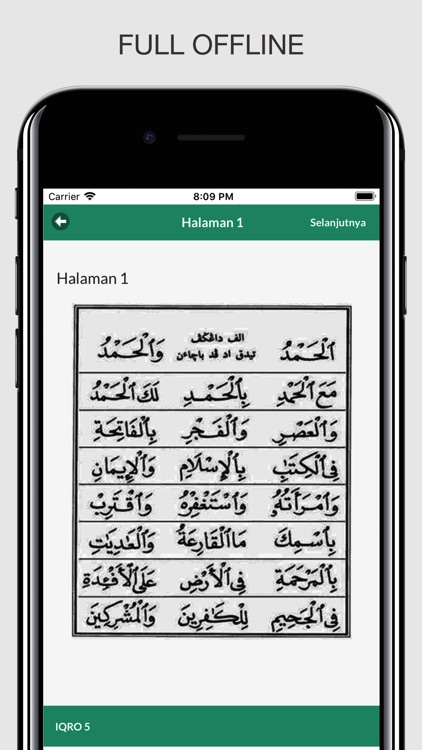 FULL OFFLINE
Carrier 8:09 PM
Halaman 1 Selanjutnya
Halaman 1
اَلْحَمْدُ الف داڠكت تيدق اد ڤد باچاءن وَالْحَمْدُ
مَعَ الْحَمْدِ بِالْحَمْدِ لَكَ الْحَمْدُ
وَالْعَصْرِ وَالْفَجْرِ بِالْفَاتِحَةِ
فِى الْكِتٰبِ بِالْإِسْلَامِ وَالْإِيمَانِ
وَامْرَأَتُهُ وَاسْتَغْفِرْهُ وَاقْتَرِبْ
بِاسْمِكَ مَا الْقَارِعَةُ وَالْعٰدِيٰتِ
بِالْمَرْحَمَةِ فِى الْأَرْضِ عَلَى الْأَفْئِدَةِ
فِى الْجَحِيمِ لِلْكٰفِرِينَ وَالْمُشْرِكِينَ
IQRO 5